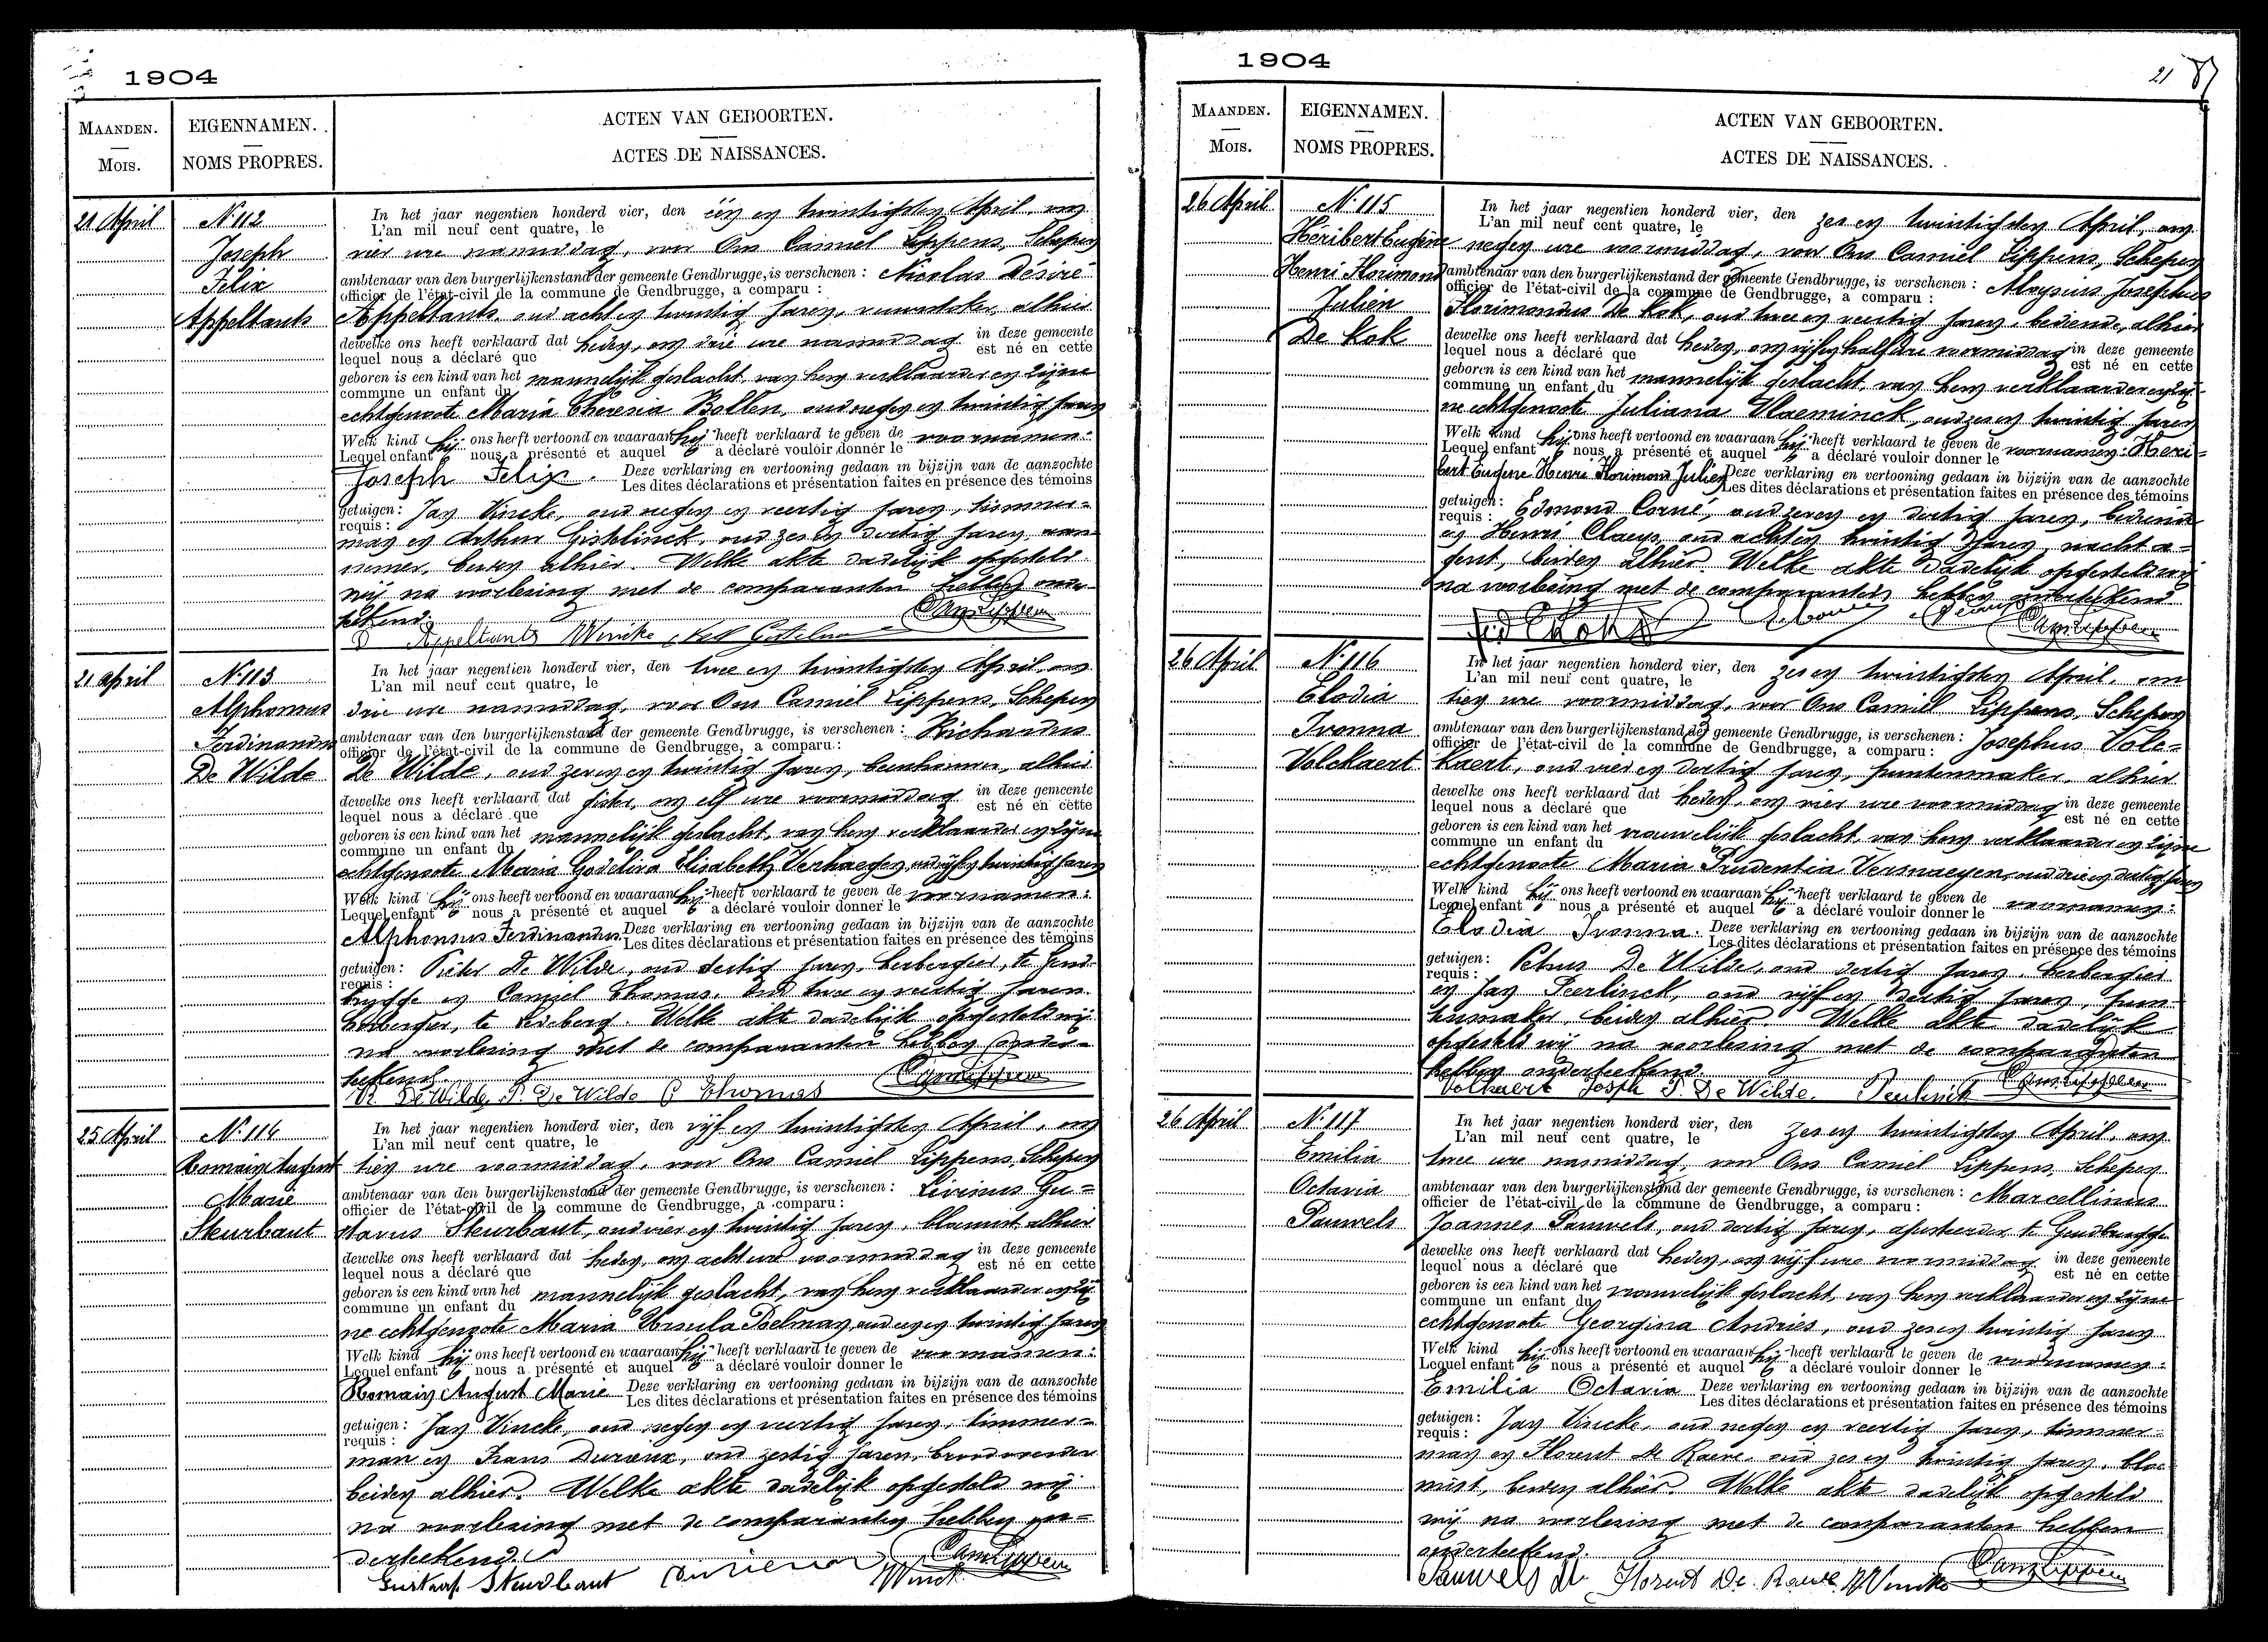 1904
MAANDEN.
MOIS.
EIGENNAMEN.
NOMS PROPRES.
ACTEN VAN GEBOORTEN.
ACTES DE NAISSANCES.
21 April
N. 112
Joseph
Felix
Appeltants
In het jaar negentien honderd vier, den één en twintigsten April, om
L'an mil neuf cent quatre, le
vier ure namiddag, voor Ons Camiel Lippens, Schepen
ambtenaar van den burgerlijkenstand der gemeente Gendbrugge, is verschenen : Nicolas Désiré
officier de l'état-civil de la commune de Gendbrugge, a comparu :
Appeltants, oud acht en twintig jaren, vuurstoker, alhier
dewelke ons heeft verklaard dat heden, om drie ure namiddag in deze gemeente
lequel nous a déclaré que est né en cette
geboren is een kind van het mannelijk geslacht, van hem verklaarder en zijne
commune un enfant du
echtgenoote Maria Theresia Bollen, oud negen en twintig jaren
Welk kind hij ons heeft vertoond en waaraan hij heeft verklaard te geven de voornamen:
Lequel enfant nous a présenté et auquel a déclaré vouloir donner le
Joseph Felix. Deze verklaring en vertooning gedaan in bijzijn van de aanzochte
Les dites déclarations et présentation faites en présence des témoins
getuigen : Jan Vincke, oud negen en veertig jaren, timmer=
requis :
man en Arthur Gistelinck, oud zes en dertig jaren, aan-
nemer, beiden alhier. Welke akte dadelijk opgesteld
wij na voorlezing met de comparanten hebben onder-
teekend.
Appeltants Vincke Cam Lippens
21 april
N. 113
Alphonsus
Ferdinandus
De Wilde
In het jaar negentien honderd vier, den twee en twintigsten April, om
L'an mil neuf cent quatre, le
drie ure namiddag, voor Ons Camiel Lippens, Schepen
ambtenaar van den burgerlijkenstand der gemeente Gendbrugge, is verschenen : Richardus
officier de l'état-civil de la commune de Gendbrugge, a comparu :
De Wilde, oud zeven en twintig jaren, beenhouwer, alhier
dewelke ons heeft verklaard dat gister, om elf ure voormiddag in deze gemeente
lequel nous a déclaré que est né en cette
geboren is een kind van het mannelijk geslacht, van hem verklaarder en zijne
commune un enfant du
echtgenoote Maria Godeliva Elisabeth Verhaegen, oud vijf en twintig jaren
Welk kind hij ons heeft vertoond en waaraan hij heeft verklaard te geven de voornamen:
Lequel enfant nous a présenté et auquel a déclaré vouloir donner le
Alphonsus Ferdinandus. Deze verklaring en vertooning gedaan in bijzijn van de aanzochte
Les dites déclarations et présentation faites en présence des témoins
getuigen : Pieter De Wilde, oud dertig jaren, herbergier, te Gend-
requis :
brugge en Camiel Thomas, oud twee en veertig jaren
herbergier, te Ledeberg. Welke akte dadelijk opgesteld wij
na voorlezing met de comparanten hebben onder-
teekend.
R. De Wilde P. De Wilde C Thomas Cam Lippens
25 April
N. 114
Romain August
Marie
Steurbaut
In het jaar negentien honderd vier, den vijf en twintigsten April, om
L'an mil neuf cent quatre, le
tien ure voormiddag, voor Ons Camiel Lippens, Schepen
ambtenaar van den burgerlijkenstand der gemeente Gendbrugge, is verschenen : Livinus Gu=
officier de l'état-civil de la commune de Gendbrugge, a comparu :
stavus Steurbaut, oud vier en twintig jaren, blomist, alhier
dewelke ons heeft verklaard dat heden, om acht ure voormiddag in deze gemeente
lequel nous a déclaré que est né en cette
geboren is een kind van het mannelijk geslacht, van hem verklaarder en zij
commune un enfant du
ne echtgenoote Maria Ursula Poelman, oud twintig jaren
Welk kind hij ons heeft vertoond en waaraan hij heeft verklaard te geven de voornamen:
Lequel enfant nous a présenté et auquel a déclaré vouloir donner le
Romain August Marie Deze verklaring en vertooning gedaan in bijzijn van de aanzochte
Les dites déclarations et présentation faites en présence des témoins
getuigen : Jan Vincke, oud negen en veertig jaren, timmer=
requis :
man en Frans oud zestig jaren,
beiden alhier. Welke akte dadelijk opgesteld wij
na voorlezing met de comparanten hebben on=
derteekend.
Gustaaf Steurbaut Vincke Cam Lippens
1904
21
MAANDEN.
MOIS.
EIGENNAMEN.
NOMS PROPRES.
ACTEN VAN GEBOORTEN.
ACTES DE NAISSANCES.
26 April
N. 115
Héribert Eugène
Henri Florimond
Julien
De Kok
In het jaar negentien honderd vier, den zes en twintigsten April, om
L'an mil neuf cent quatre, le
negen ure voormiddag, voor Ons Camiel Lippens, Schepen
ambtenaar van den burgerlijkenstand der gemeente Gendbrugge, is verschenen : Aloysius Josephus
officier de l'état-civil de la commune de Gendbrugge, a comparu :
Florimondus De Kok, oud twee en veertig jaren, bediende, alhier
dewelke ons heeft verklaard dat heden, om vijf en half ure voormiddag in deze gemeente
lequel nous a déclaré que est né en cette
geboren is een kind van het mannelijk geslacht, van hem verklaarder en zij-
commune un enfant du
ne echtgenoote Juliana Vlaeminck, oud zes en twintig jaren
Welk kind hij ons heeft vertoond en waaraan hij heeft verklaard te geven de voornamen: Heri=
Lequel enfant nous a présenté et auquel a déclaré vouloir donner le
bert Eugene Henri Florimond Julien Deze verklaring en vertooning gedaan in bijzijn van de aanzochte
Les dites déclarations et présentation faites en présence des témoins
getuigen : Edmond Corné, oud zeven en dertig jaren, bediende
requis :
en Henri Claeys, oud acht en twintig jaren, nacht a-
gent, beiden alhier. Welke akte dadelijk opgesteld wij
na voorlezing met de comparanten hebben onderteekend.
Cam Lippens
26 April
N. 116
Elodia
Ivonna
Volckaert
In het jaar negentien honderd vier, den zes en twintigsten April, om
L'an mil neuf cent quatre, le
tien ure voormiddag, voor Ons Camiel Lippens, Schepen
ambtenaar van den burgerlijkenstand der gemeente Gendbrugge, is verschenen : Josephus Volc=
officier de l'état-civil de la commune de Gendbrugge, a comparu :
kaert, oud vier en dertig jaren, puntenmaker, alhier
dewelke ons heeft verklaard dat heden, om vier ure voormiddag in deze gemeente
lequel nous a déclaré que est né en cette
geboren is een kind van het vrouwelijk geslacht, van hem verklaarder en zijne
commune un enfant du
echtgenoote Maria Prudentia Vermaeyen, oud drie en dertig jaren
Welk kind hij ons heeft vertoond en waaraan hij heeft verklaard te geven de voornamen:
Lequel enfant nous a présenté et auquel a déclaré vouloir donner le
Elodia Ivonna. Deze verklaring en vertooning gedaan in bijzijn van de aanzochte
Les dites déclarations et présentation faites en présence des témoins
getuigen : Petrus De Wilde, oud dertig jaren, herbergier
requis :
en Jan Peerlinck, oud vijf en dertig jaren, pun-
tenmaker, beiden alhier. Welke akte dadelijk
opgesteld wij na voorlezing met de comparanten
hebben onderteekend.
Volkaert Joseph P. De Wilde. Peerlinck Cam Lippens
26 April
N. 117
Emilia
Octavia
Pauwels
In het jaar negentien honderd vier, den zes en twintigsten April, om
L'an mil neuf cent quatre, le
twee ure namiddag, voor Ons Camiel Lippens, Schepen
ambtenaar van den burgerlijkenstand der gemeente Gendbrugge, is verschenen : Marcellinus
officier de l'état-civil de la commune de Gendbrugge, a comparu :
Joannes Pauwels, oud dertig jaren, te Gendbrugge
dewelke ons heeft verklaard dat heden, om vijf ure voormiddag in deze gemeente
lequel nous a déclaré que est né en cette
geboren is een kind van het vrouwelijk geslacht, van hem verklaarder en zijne
commune un enfant du
echtgenoote Georgina Andries, oud zes en twintig jaren
Welk kind hij ons heeft vertoond en waaraan hij heeft verklaard te geven de voornamen:
Lequel enfant nous a présenté et auquel a déclaré vouloir donner le
Emilia Octavia Deze verklaring en vertooning gedaan in bijzijn van de aanzochte
Les dites déclarations et présentation faites en présence des témoins
getuigen : Jan Vincke, oud negen en veertig jaren, timmer=
requis :
man en Florent De Raeve, oud zes en twintig jaren, bloe
mist, beiden alhier. Welke akte dadelijk opgesteld
wij na voorlezing met de comparanten hebben
onderteekend.
Pauwels Florent De Raeve Vincke Cam Lippens